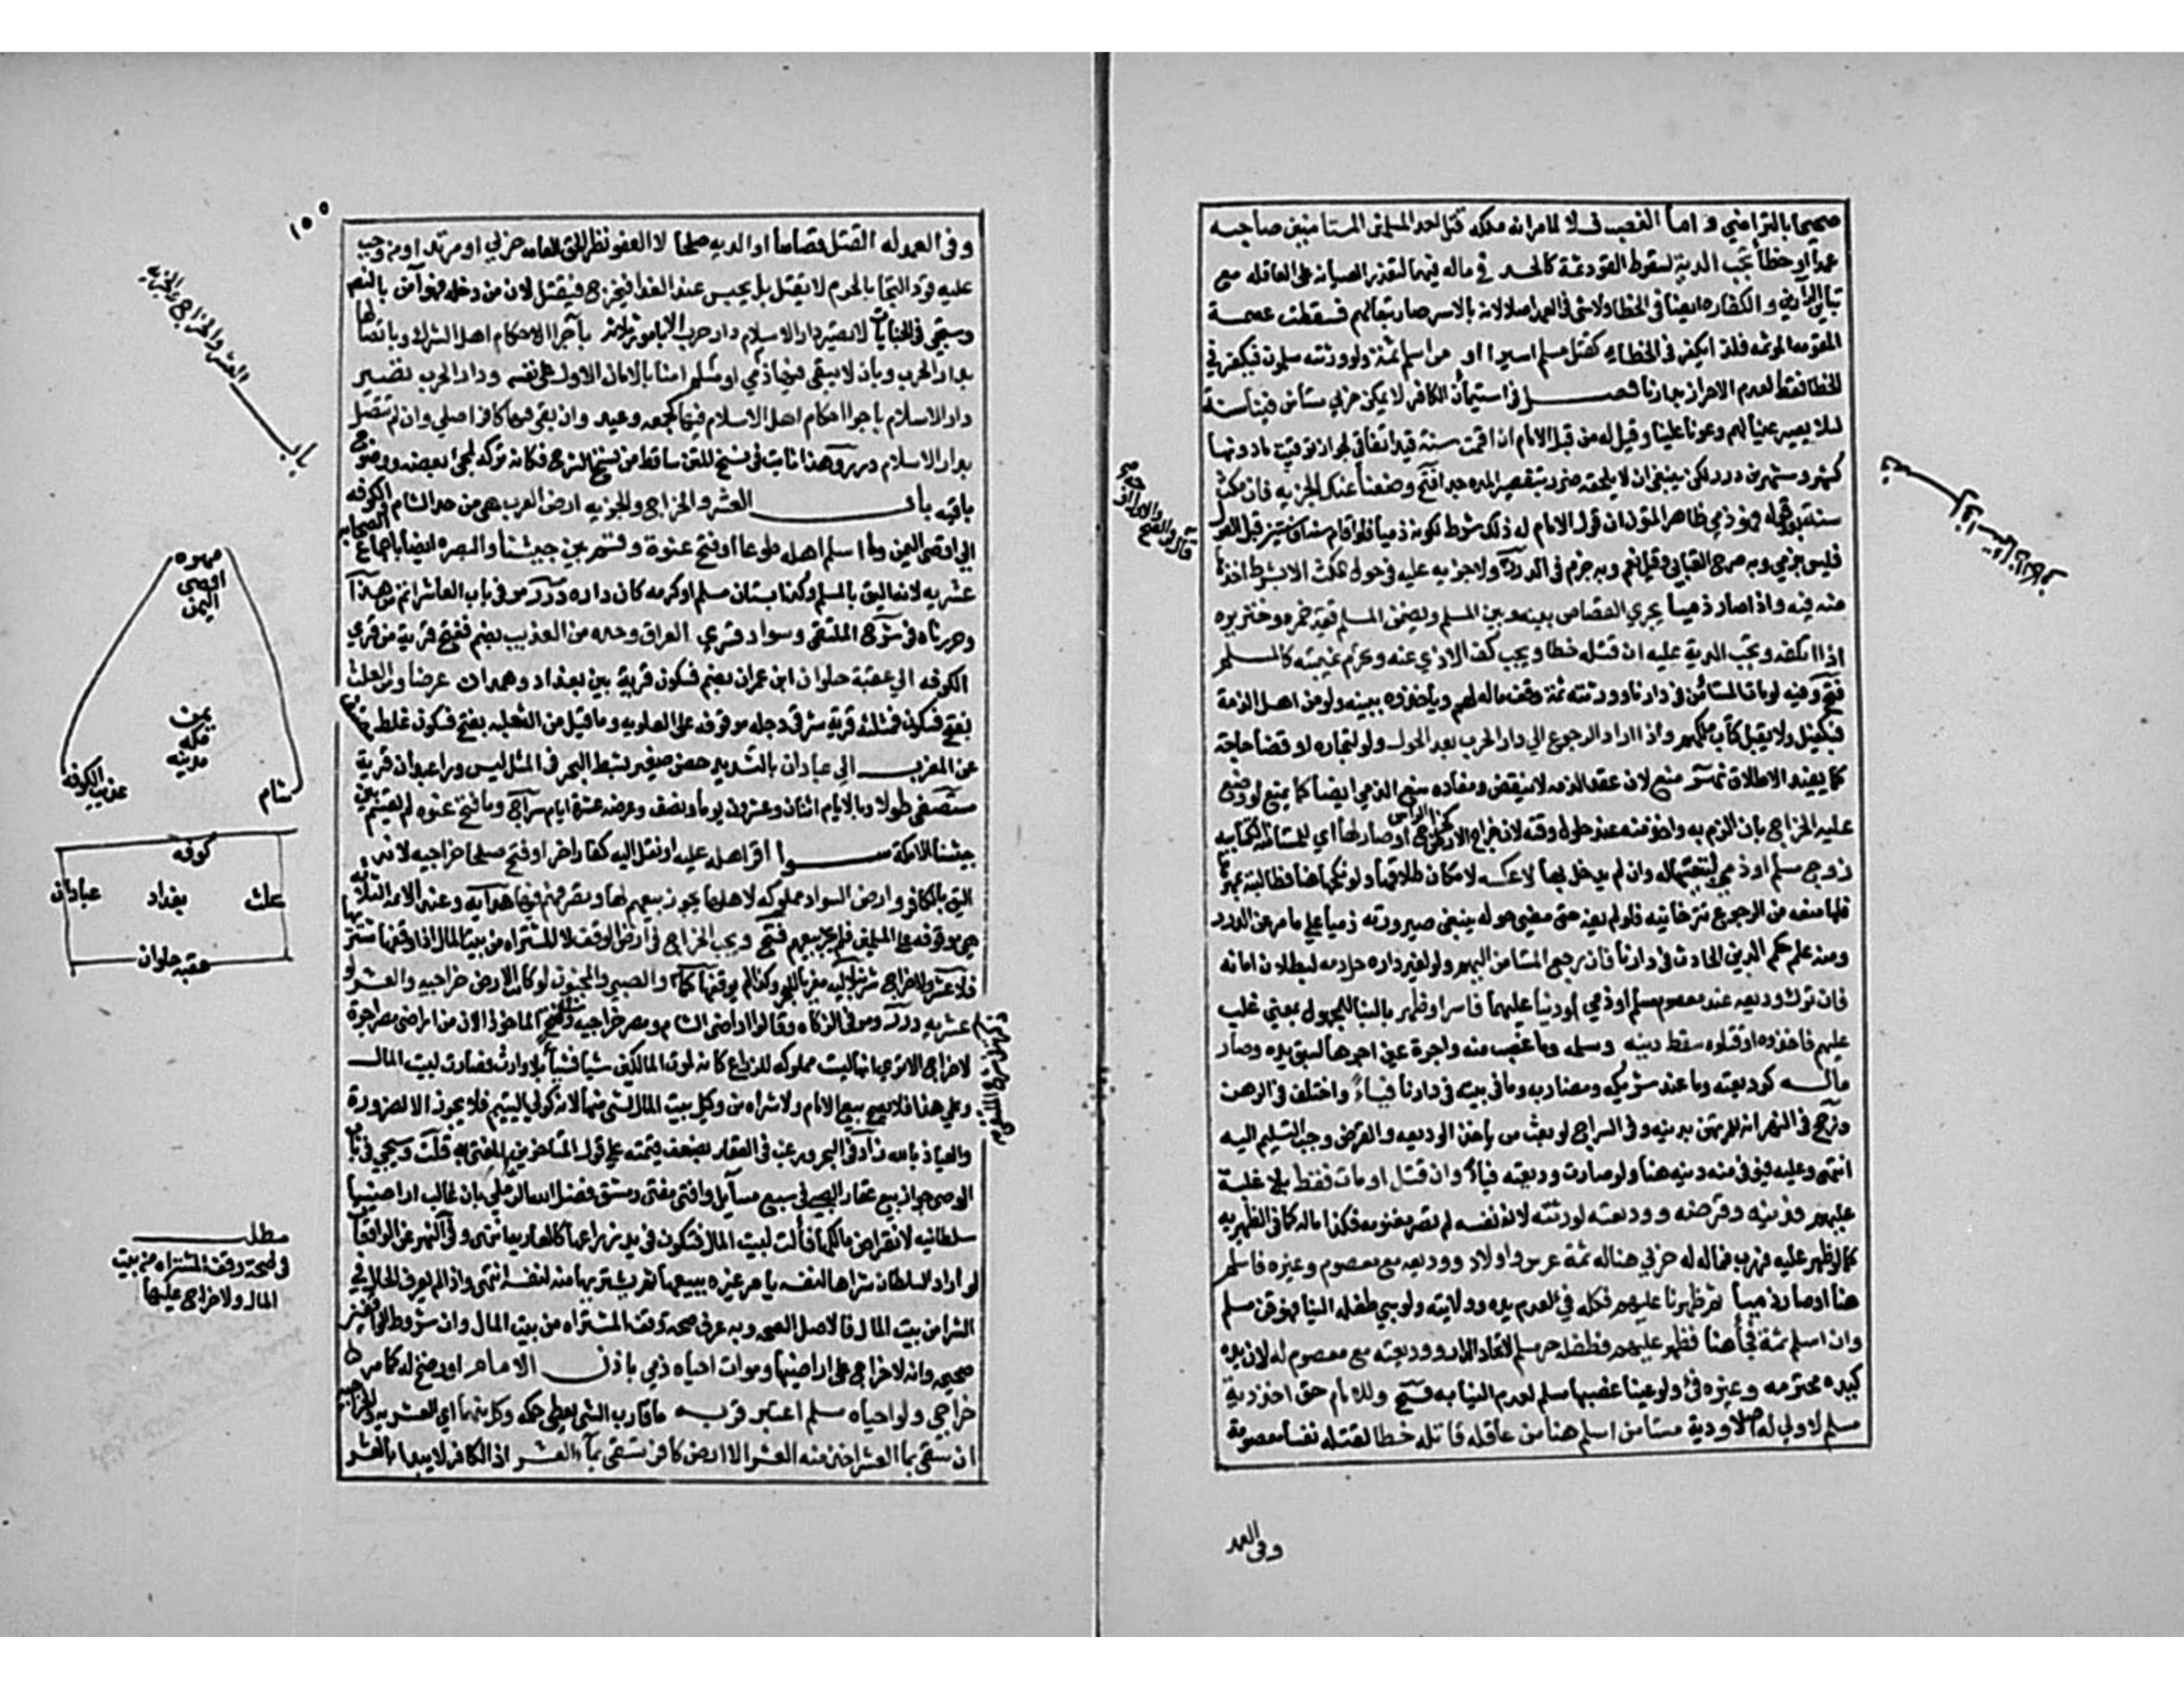 صحيحا بالتراضي و اما الغصب فلا لما مر انه ملكه قتل احد المسلمين المستامنين صاحبه
عمدا او خطأ تجب الدية لسقوط القود ثمة كالحد في ماله فيهما لتعذر الصيانة على العاقلة مع
تباين الدارين و الكفارة ايضا في الخطا ولا شئ في العمد اصلا لانه بالاسر صار تبعا لهم فسقطت عصمته
المقومة لا المؤثمة فلذا يكفر في الخطا كقتل مسلم اسيرا او من اسلم ثمة ولو ورثته مسلمون ثمة فيكفر في
الخطا فقط لعدم الاحراز بدارنا فصل في استيمان الكافر لا يمكن حربي مستأمن فينا سنة
لئلا يصير عينا لهم وعونا علينا وقيل له من قبل الامام ان اقمت سنة قيد اتفاقي لجواز توقيت ما دونها
كشهر وشهرين درر لكن ينبغي ان لا يلحقه ضرر بتقصير المدة جدا فتح وضعنا عليك الجزية فان مكث
سنة بعد قوله فهو ذمي ظاهر المتون ان قول الامام له ذلك شرط لكونه ذميا فلو اقام سنة او سنتين قبل القول
فليس بذمي وبه صرح العتابي وقيل نعم وبه جزم في الدرر ولا جزية عليه في حول المكث الا بشرط اخذها
منه فيه واذا صار ذميا يجري القصاص بينه وبين المسلم ويضمن المسلم قيمة خمره وخنزيره
اذا اتلفه وتجب الدية عليه ان قتله خطا ويجب كف الاذي عنه وتحرم غيبته كالمسلم
فتح وفيه لو مات المستأمن في دارنا وورثته ثمة وقف ماله لهم وياخذوه ببينة ولو من اهل الذمة
فبكفيل ولا يقبل كتاب ملكهم واذا اراد الرجوع الي دار الحرب بعد الحول ولو لتجارة او قضا حاجة
كما يفيده الاطلاق نهر منع لان عقد الذمة لا ينقض ومفاده منع الذمي ايضا كما يمنع لو وضع
عليه الخراج بان الزم به واخذ منه عند حلول وقته لان خراج الارض كخراج الراس او صار لها اي المستامنة الكتابية
زوج مسلم او ذمي لتبعيتها له وان لم يدخل بها لا عكسه لامكان طلاقها ولو نكحها هنا فطالبته بمهرها
فلها منعه من الرجوع تترخانية فلو لم يف حتى مضى حوله ينبغي صيرورته ذميا على ما مر عن الدرر
ومنه علم حكم الدين الحادث في دارنا فان رجع المستامن اليهم ولو لغير داره حل دمه لبطلان امانه
فان ترك وديعة عند معصوم مسلم او ذمي او دينا عليهما فاسر او ظهر بالبنا للمجهول بمعني غلب
عليهم فاخذوه او قتلوه سقط دينه وسلمه وما غصب منه واجرة عين اجرها لسبق يده وصار
ماله كوديعته وما عند شريكه ومضاربه وما في بيته في دارنا فيأ واختلف في الرهن
ورجح في النهر انه للمرتهن بدينه وفي السراج لو بعث من ياخذ الوديعة والقرض وجب التسليم اليه
انتهى وعليه فيوفى منه دينه هنا ولو صارت وديعته فيأ وان قتل او مات فقط بلا غلبة
عليهم فدينه وقرضه ووديعته لورثته لان نفسه لم تصر مغنومة فكذا ماله كما في الظهيرية
كما لو ظهر عليه فهرب فماله له حربي هنا له ثمة عرس واولاد ووديعة مع معصوم وغيره فاسلم
هنا او صار ذميا ثم ظهرنا عليهم فكله فيء لعدم يده وولايته ولو سبي طفله الينا فهو قن مسلم
وان اسلم ثمة فجأ هنا فظهر عليهم فطفله حر مسلم لاتحاد الدار ووديعته مع معصوم له لان يده
كيده محترمة وغيره فئ ولو عينا غصبها مسلم لعدم النيابة فتح وللامام حق اخذ دية
مسلم لا ولي له اصلا ودية مستامن اسلم هنا من عاقلة قاتله خطا لقتله نفسا معصومة
وفي العمد
١٥٥
وفي العمد له القتل قصاصا او الدية صلحا لا العفو نظرا لحق العامة حربي او مرتد او من وجب
عليه قود التجأ بالحرم لا يقتل بل يحبس عنه الغدا فيخرج فيقتل لان من دخله فهو آمن بالنص
وسيجئ في الجنايات لا تصير دار الاسلام دار حرب الا بامور ثلاثة باجرا احكام اهل الشرك وباتصالها
بدار الحرب وبان لا يبقى فيها ذمي او مسلم امنا بالامان الاول على نفسه ودار الحرب تصير
دار الاسلام باجرا احكام اهل الاسلام فيها كجمعة وعيد وان بقى فيها كافر اصلي وان لم تتصل
بدار الاسلام درر وهذا ثابت في نسخ المتن ساقط من نسخ الشرح فكانه تركه لمجئ بعضه ووضوح
باقيه باب العشر والخراج والجزية ارض العرب هي من حد الشام والكوفة
الي اقصى اليمن وما اسلم اهله طوعا او فتح عنوة وقسم بين جيشنا والبصرة ايضا باجماع الصحابة
عشرية لانه اليق بالمسلم وكذا بستان مسلم او كرمه كان داره درر مر في باب العاشر اتم من هذا
وحررناه في شرح الملتقى وسواد قري العراق وحده من العذيب بضم ففتح قرية من قري
الكوفة الي عقبة حلوان ابن عمران بضم فسكون قرية بين بغداد وهمدان عرضا ومن العلث
بفتح فسكون فمثلثة قرية شرقي دجلة موقوفة على العلوية وما قيل من الثعلبة بفتح فسكون غلط مصنف
عن المغرب الي عبادان بالتشديد حصن صغير بشط البحر في المثل ليس وراء عبادان قرية
مستصفى طولا وبالايام اثنان وعشرون يوما ونصف وعرضه عشرة ايام سراج وما فتح عنوة ولم يقسم بين
جيشنا الا مكة سوا اقر اهله عليه او نقل اليه كفار اخر او فتح صلحا خراجية لانه
اليق بالكافر وارض السواد مملوكة لاهلها يجوز بيعهم لها وتصرفهم فيها هداية وعند الائمة الثلاثة
هي موقوفة على المسلمين فلم يجز بيعهم فتح ويجب الخراج في ارض الوقف الا المشتراة من بيت المال اذا وقفها مشتريها
فلا عشر ولا خراج شرنبلالية معزيا للبحر وكذا لو لم يوقفها كما والصبي والمجنون لو كانت الارض خراجية والعشر لو
عشرية درر ومر في الزكاة وقالوا اراضى الشام ومصر خراجية وفي الفتح الماخوذ الان من اراضى مصر اجرة
لا خراج الا تري انها ليست مملوكة للزراع كانه لموت المالكين شيا فشيأ بلا وارث فصارت لبيت المال
وعلي هذا فلا يصح بيع الامام ولا شراه من وكيل بيت المال لشئ منها لانه كولي اليتيم فلا يجوز الا لضرورة
والعياذ بالله زاد في البحر ورغبة في العقار بضعف قيمته على قول المتاخرين المفتى به قلت وسيجئ في باب
الوصي جواز بيع عقار الصبي في سبع مسايل وافتى مفتى دمشق فضل الله الرومي بان غالب اراضينا
سلطانية لانقراض ملاكها فآلت لبيت المال فتكون في يد زراعها كالعارية انتهى وفي النهر عن الواقعات
لو اراد السلطان شراها لنفسه يامر غيره ببيعها ثم يشتريها منه لنفسه انتهى واذا لم يعرف الحال في
الشرا من بيت المال فالاصل الصحة وبه عرف صحة وقف المشتراة من بيت المال وان شروط الواقفين
صحيحة وانه لا خراج على اراضيها وموات احياه ذمي باذن الامام او رضخ له كما مر
خراجي ولو احياه مسلم اعتبر قربه ما قارب الشئ يعطى حكمه وكل منهما اي العشرية والخراجية
ان سقى بما العشر اخذ منه العشر الا ارض كافر تسقى بماء العشر اذ الكافر لا يبدا بالعشر
باب العشر والخراج والجزية
مهره
اقصى
اليمن
يمن
مكة
مدينة
شام
عذيب الكوفة
كوفة
علث بغداد عبادان
عقبة حلوان
مطلب
في صحة وقف المشتراه من بيت
المال ولا خراج عليها